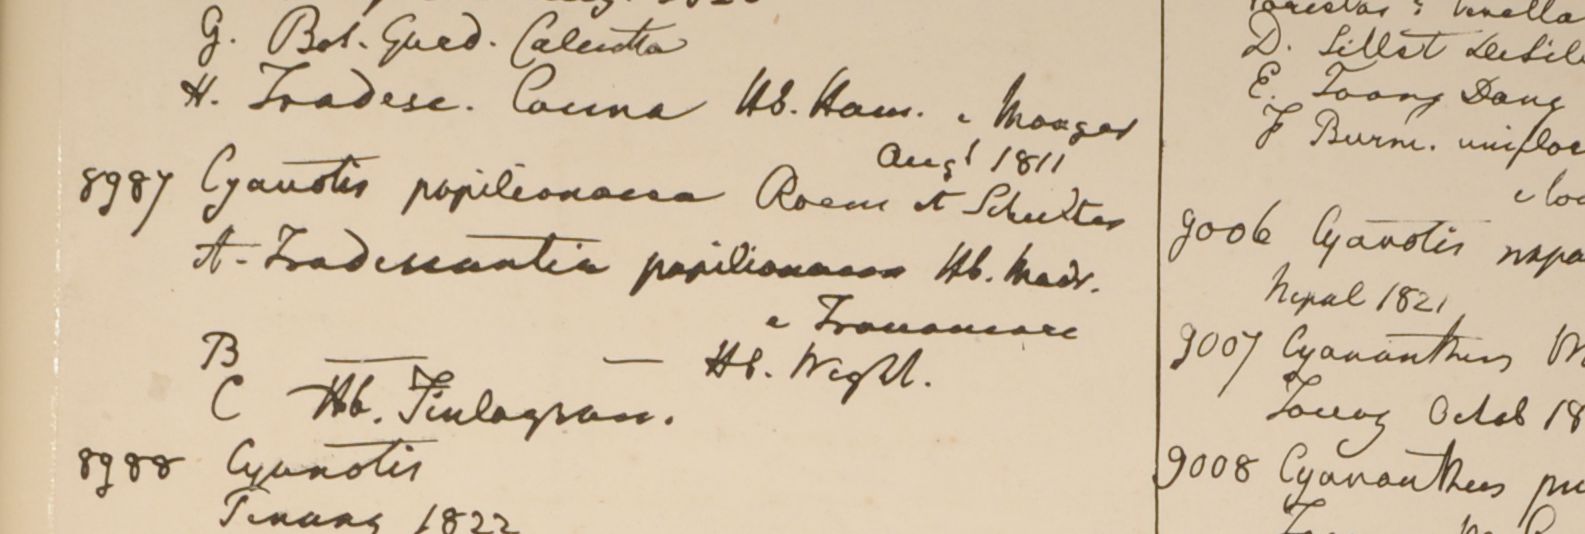 G. Bot. Gard. Calcutta
H. Tradesc. Hb. Ham. e
Augt 1811
8987 Cyanotis papilionacea Roem et Schultes
A. Tradescantia papilionacea Hb. Madr.
e Travancore
B — — Hb. Wight.
C Hb. Finlayson.
8988 Cyanotis
Penang 1822
D. Sillet
E. Toong Dong
F Burm.
9006 Cyanotis
Nepal 1821
9007 Cyananthus
Octob 18
9008 Cyananthus